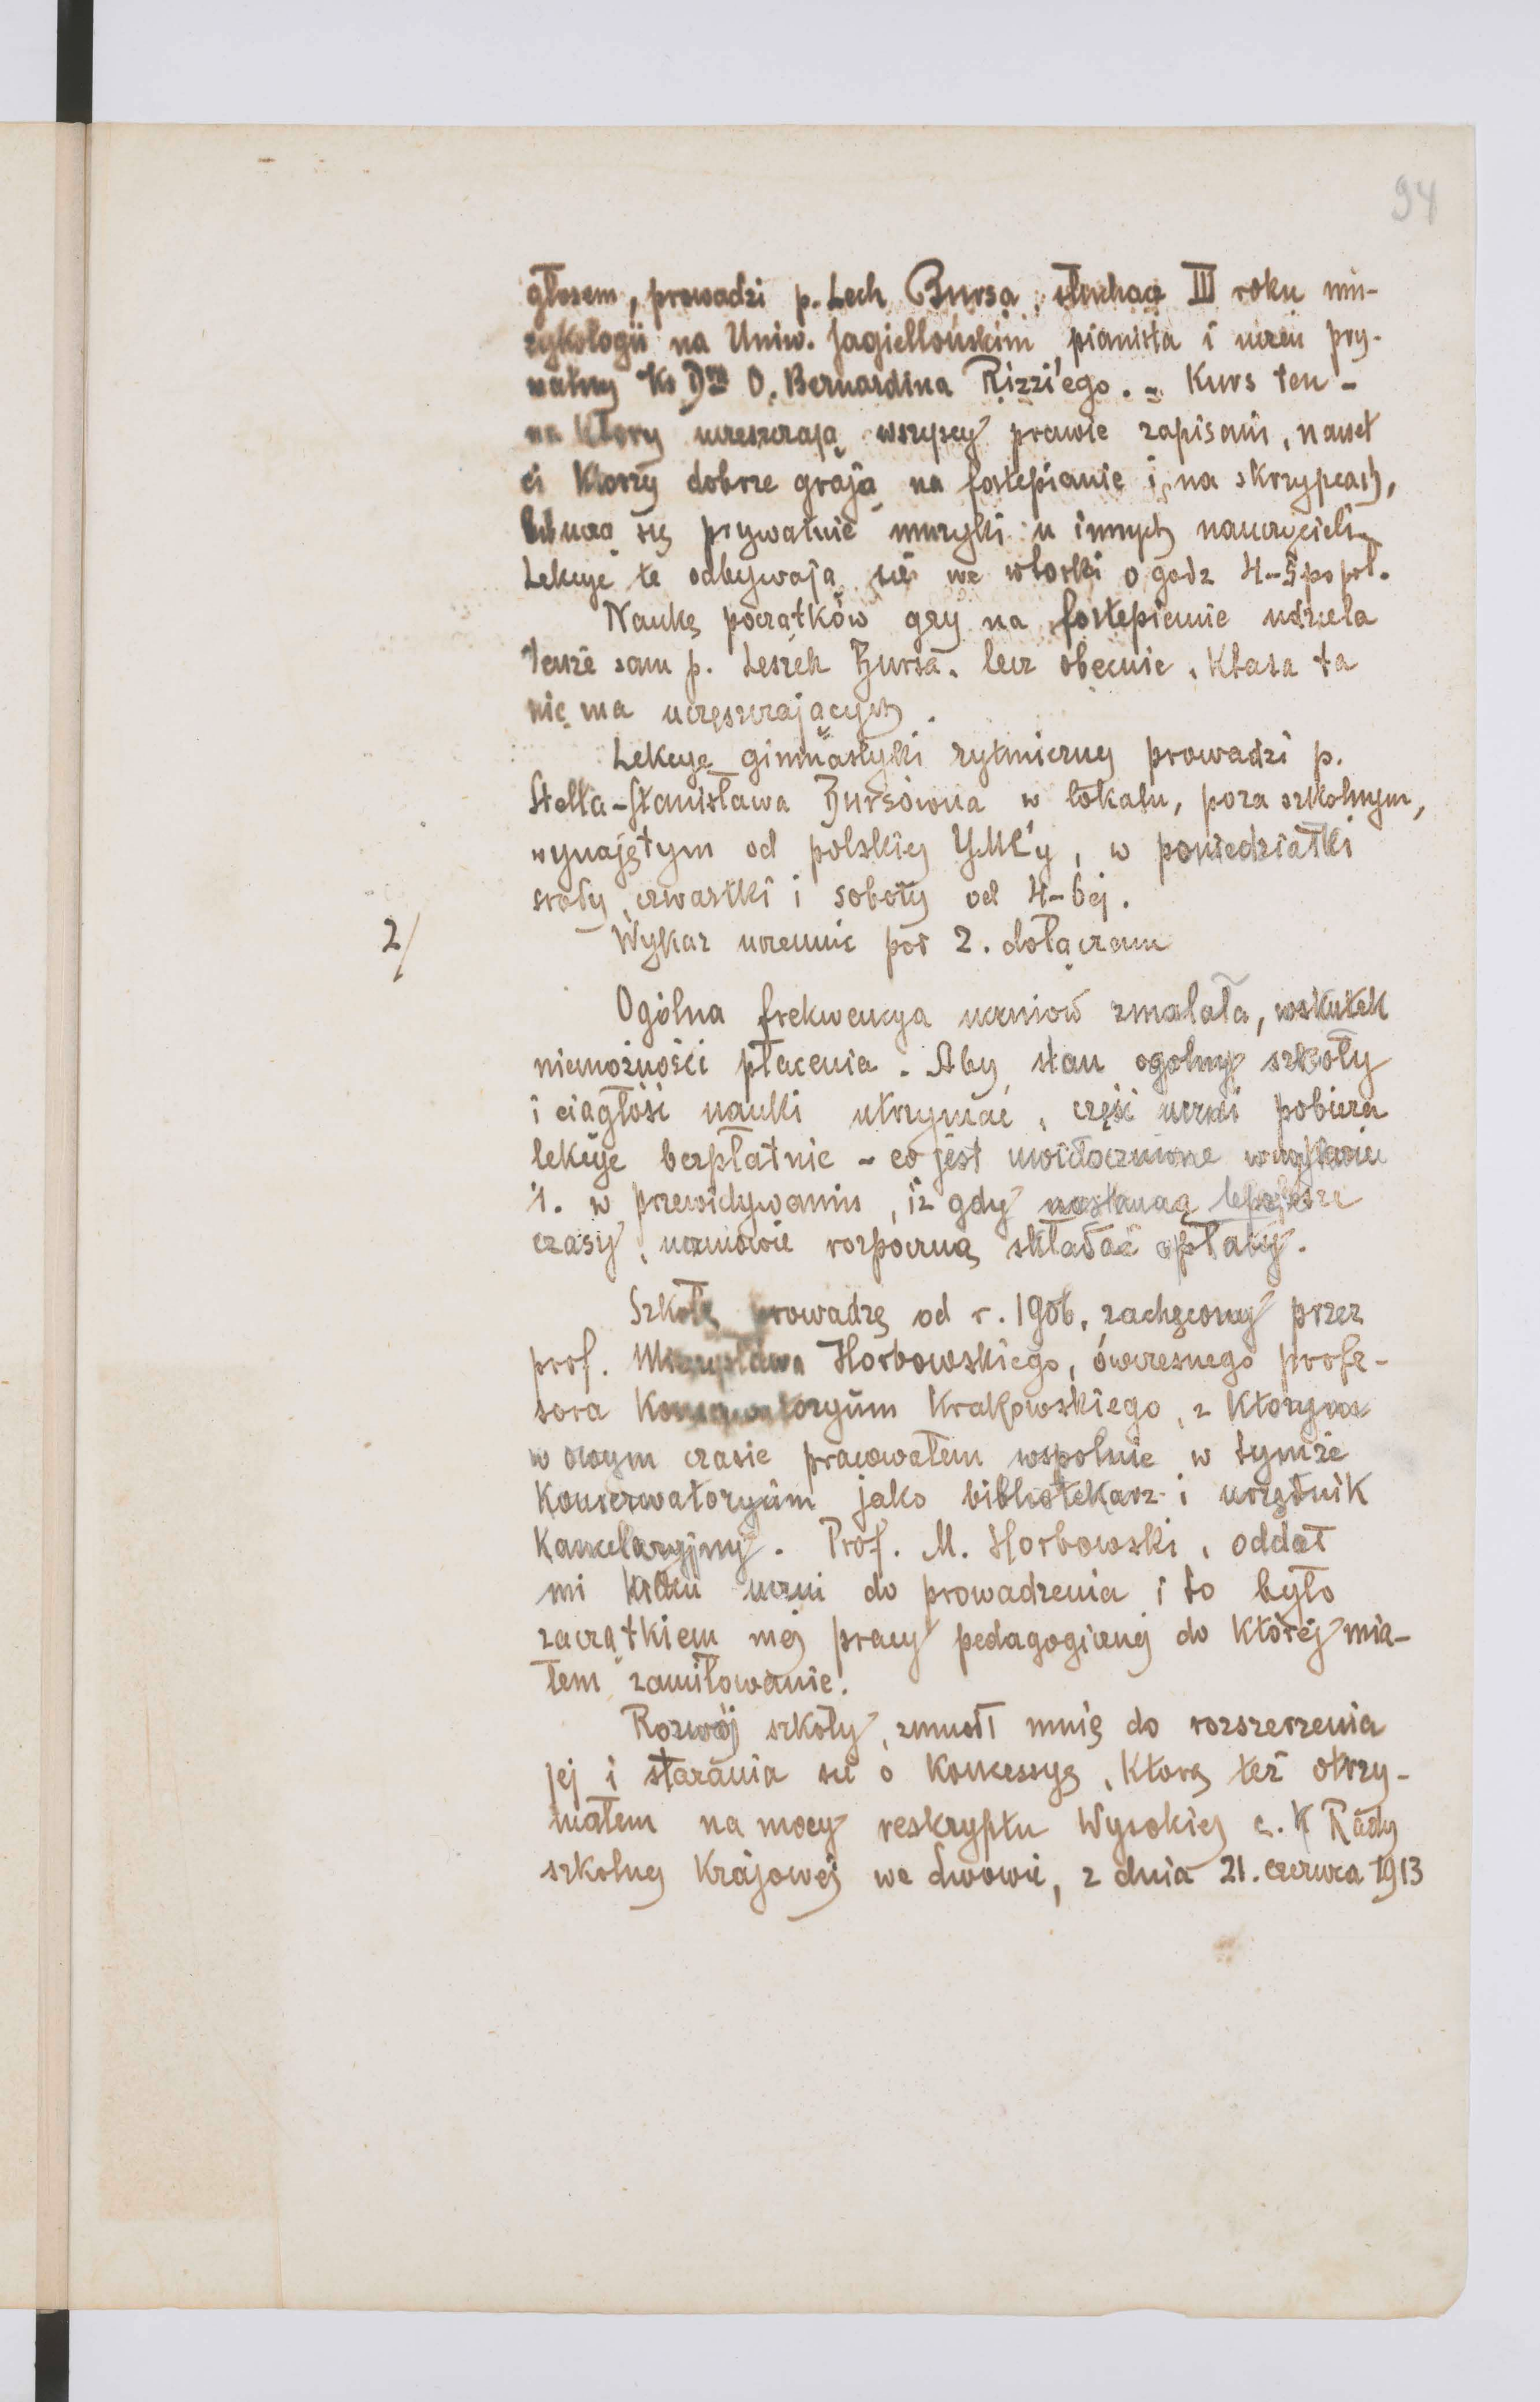 94
głosem, prowadzi p. Lech Bursa, słuchacz III roku mu-
zykologii na Uniw. Jagiellońskim pianista i uczeń pry-
watny Ks Dra O. Bernardina Rizzi'ego. - Kurs ten -
na który uczęszczają wszyscy prawie zapisani, nawet
ci którzy dobrze grają na fortepianie i na skrzypcach,
lub uczą się prywatnie muzyki u innych nauczycieli.
Lekcye te odbywają się we wtorki o godz 4-5 popoł.
Naukę początków gry na fortepianie udziela
tenże sam p. Leszek Bursa. lecz obecnie, klasa ta
nie ma uczęszczających.
Lekcye gimnastyki rytmicznej prowadzi p.
Stella-Stanisława Bursówna w lokalu, poza szkolnym,
wynajętym od polskiej YMC'y, w poniedziałki
środy, czwartki i soboty od 4-6ej.
2/ Wykaz uczennic pod 2. dołączam
Ogólna frekwencya uczniów zmalała, wskutek
niemożności płacenia. Aby stan ogólny szkoły
i ciągłość nauki utrzymać, część uczni pobiera
lekcye bezpłatnie - co jest uwidocznione w wykazie
1. w przewidywaniu, iż gdy nastaną lepsze
czasy, uczniowie rozpoczną składać opłaty.
Szkołę prowadzę od r. 1906, zachęcony przez
prof. Mieczysława Horbowskiego, ówczesnego profe-
sora Konserwatoryum Krakowskiego, z którym
w owym czasie pracowałem wspólnie w tymże
Konserwatoryum jako bibliotekarz i urzędnik
kancelaryjny. Prof. M. Horbowski, oddał
mi kilku uczni do prowadzenia i to było
zaczątkiem mej pracy pedagogicznej do której mia-
łem zamiłowanie.
Rozwój szkoły, zmusił mnie do rozszerzenia
jej i starania się o koncessyę, którą też otrzy-
małem na mocy reskryptu Wysokiej c. K Rady
szkolnej Krajowej we Lwowie, z dnia 21. czerwca 1913